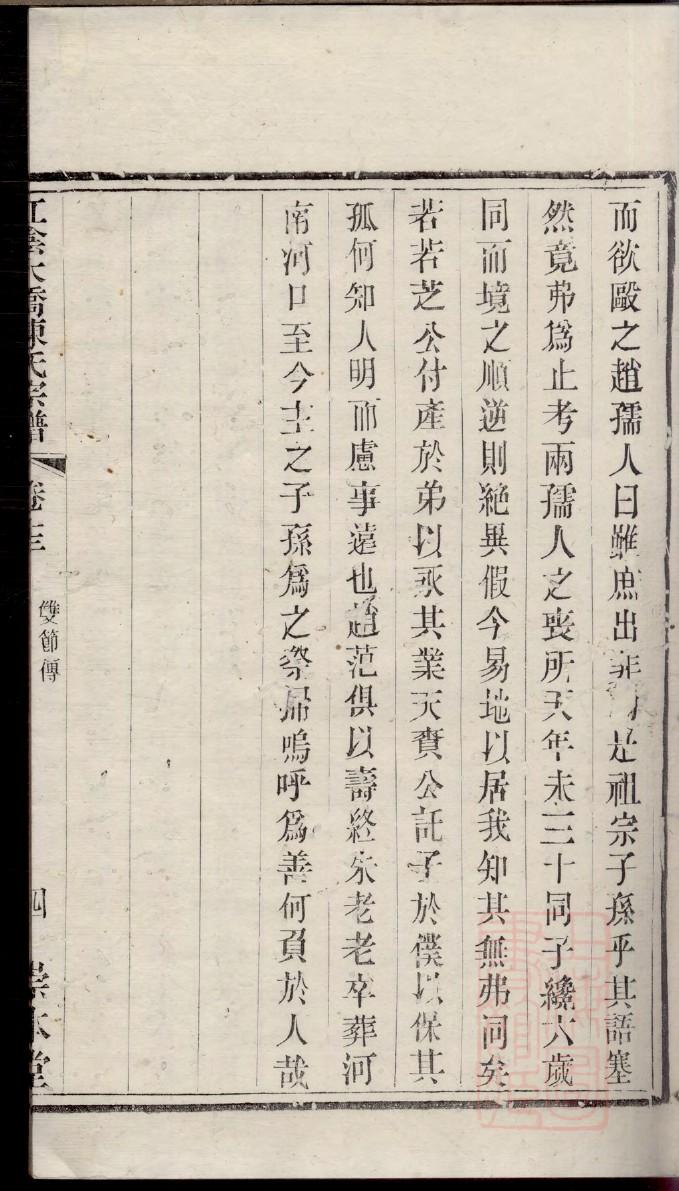 而欲毆之趙孺人曰雖庶出非 是祖宗子孫乎其語塞
然竟弗爲止考兩孺人之喪所天年未三十同子纔六歲
同而境之順逆則絶異假令易地以居我知其無弗同矣
若若芝公付產於弟以承其業天賚公託子於僕以保其
孤何知人明而慮事遠也趙范俱以壽終朱老老卒葬河
南河口至今主之子孫爲之祭掃嗚呼爲善何負於人哉
江陰大橋陳氏宗譜 卷三 雙節傳 四 崇本堂